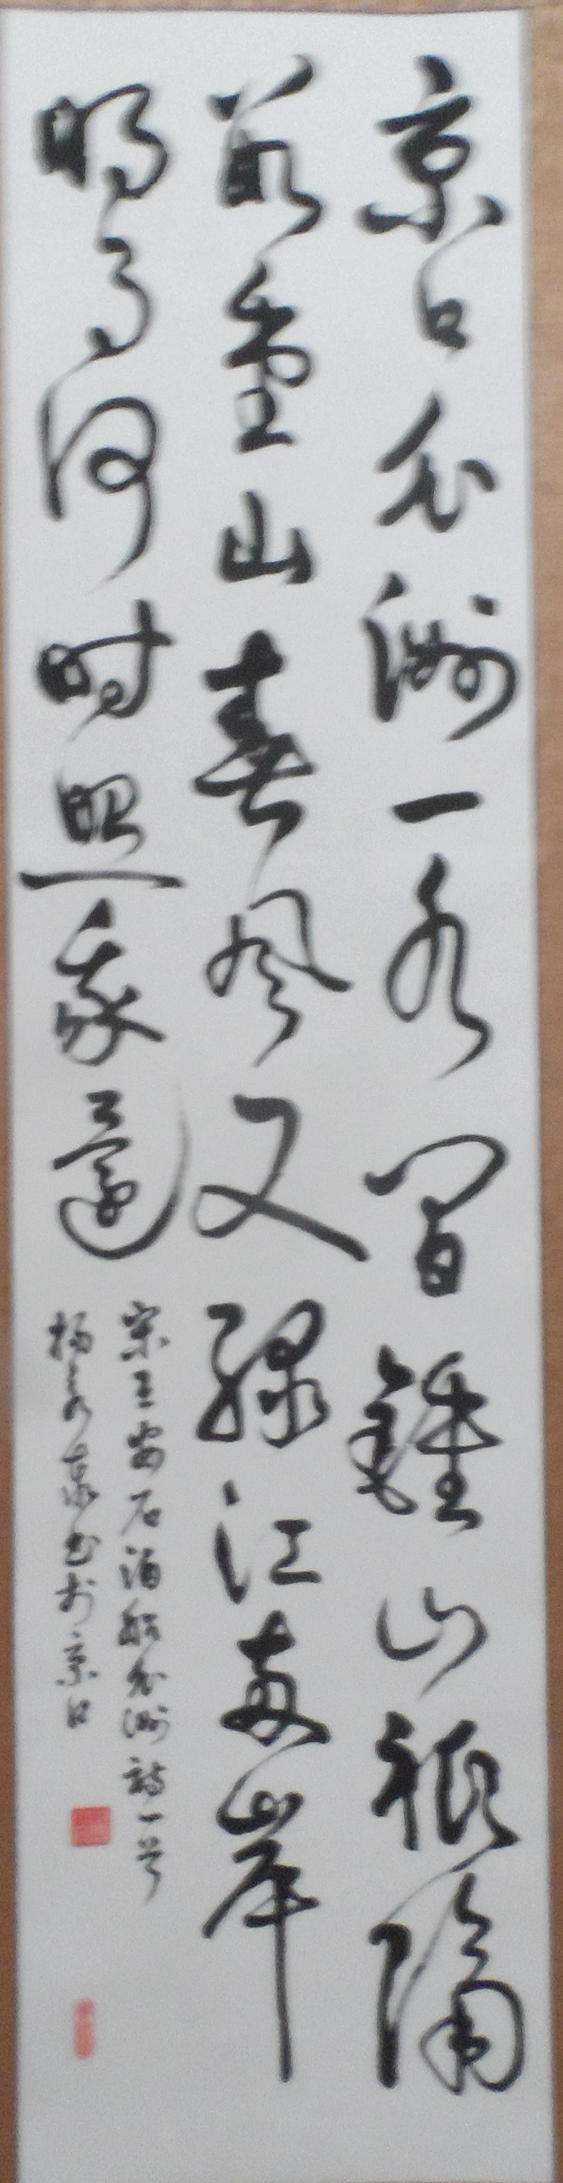 京口瓜洲一水間鍾山祗隔
數重山春風又綠江南岸
明月何時照我還
宋王安石泊船瓜洲詩一首
書於京口